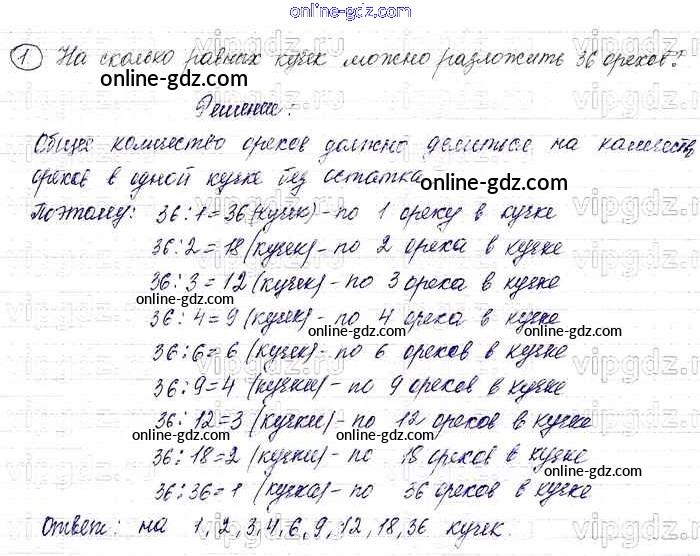 online-gdz.com
1. На сколько равных кучек можно разложить 36 орехов?
online-gdz.com
Решение:
Общее количество орехов должно делиться на количеств
орехов в одной кучке без остатка
online-gdz.com
Поэтому: 36:1=36 (кучек) - по 1 ореху в кучке
36:2=18 (кучек) - по 2 ореха в кучке
36:3=12 (кучек) - по 3 ореха в кучке
online-gdz.com online-gdz.com
36:4=9 (кучек) - по 4 ореха в кучке
online-gdz.com
36:6=6 (кучек) - по 6 орехов в кучке
36:9=4 (кучки) - по 9 орехов в кучке
online-gdz.com
36:12=3 (кучки) - по 12 орехов в кучке
online-gdz.com online-gdz.com
36:18=2 (кучки) - по 18 орехов в кучке
online-gdz.com
36:36=1 (кучка) - по 36 орехов в кучке
Ответ: на 1, 2, 3, 4, 6, 9, 12, 18, 36 кучек.
online-gdz.com